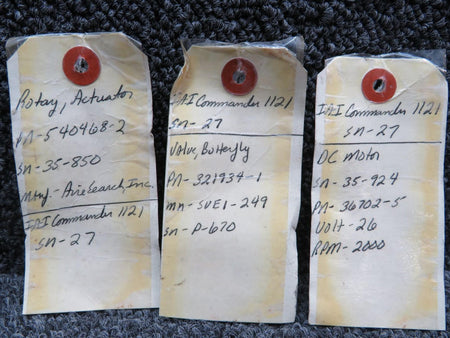 Rotary, Actuator
PN-540468-2
SN-35-850
Mfg.- AiResearch, Inc.
IAI Commander 1121
SN-27
IAI Commander 1121
SN-27
Valve, Butterfly
PN-321934-1
MN-SVE1-249
SN-P-670
IAI Commander 1121
SN-27
DC Motor
SN-35-924
PN-36702-5
Volt-26
RPM-2000